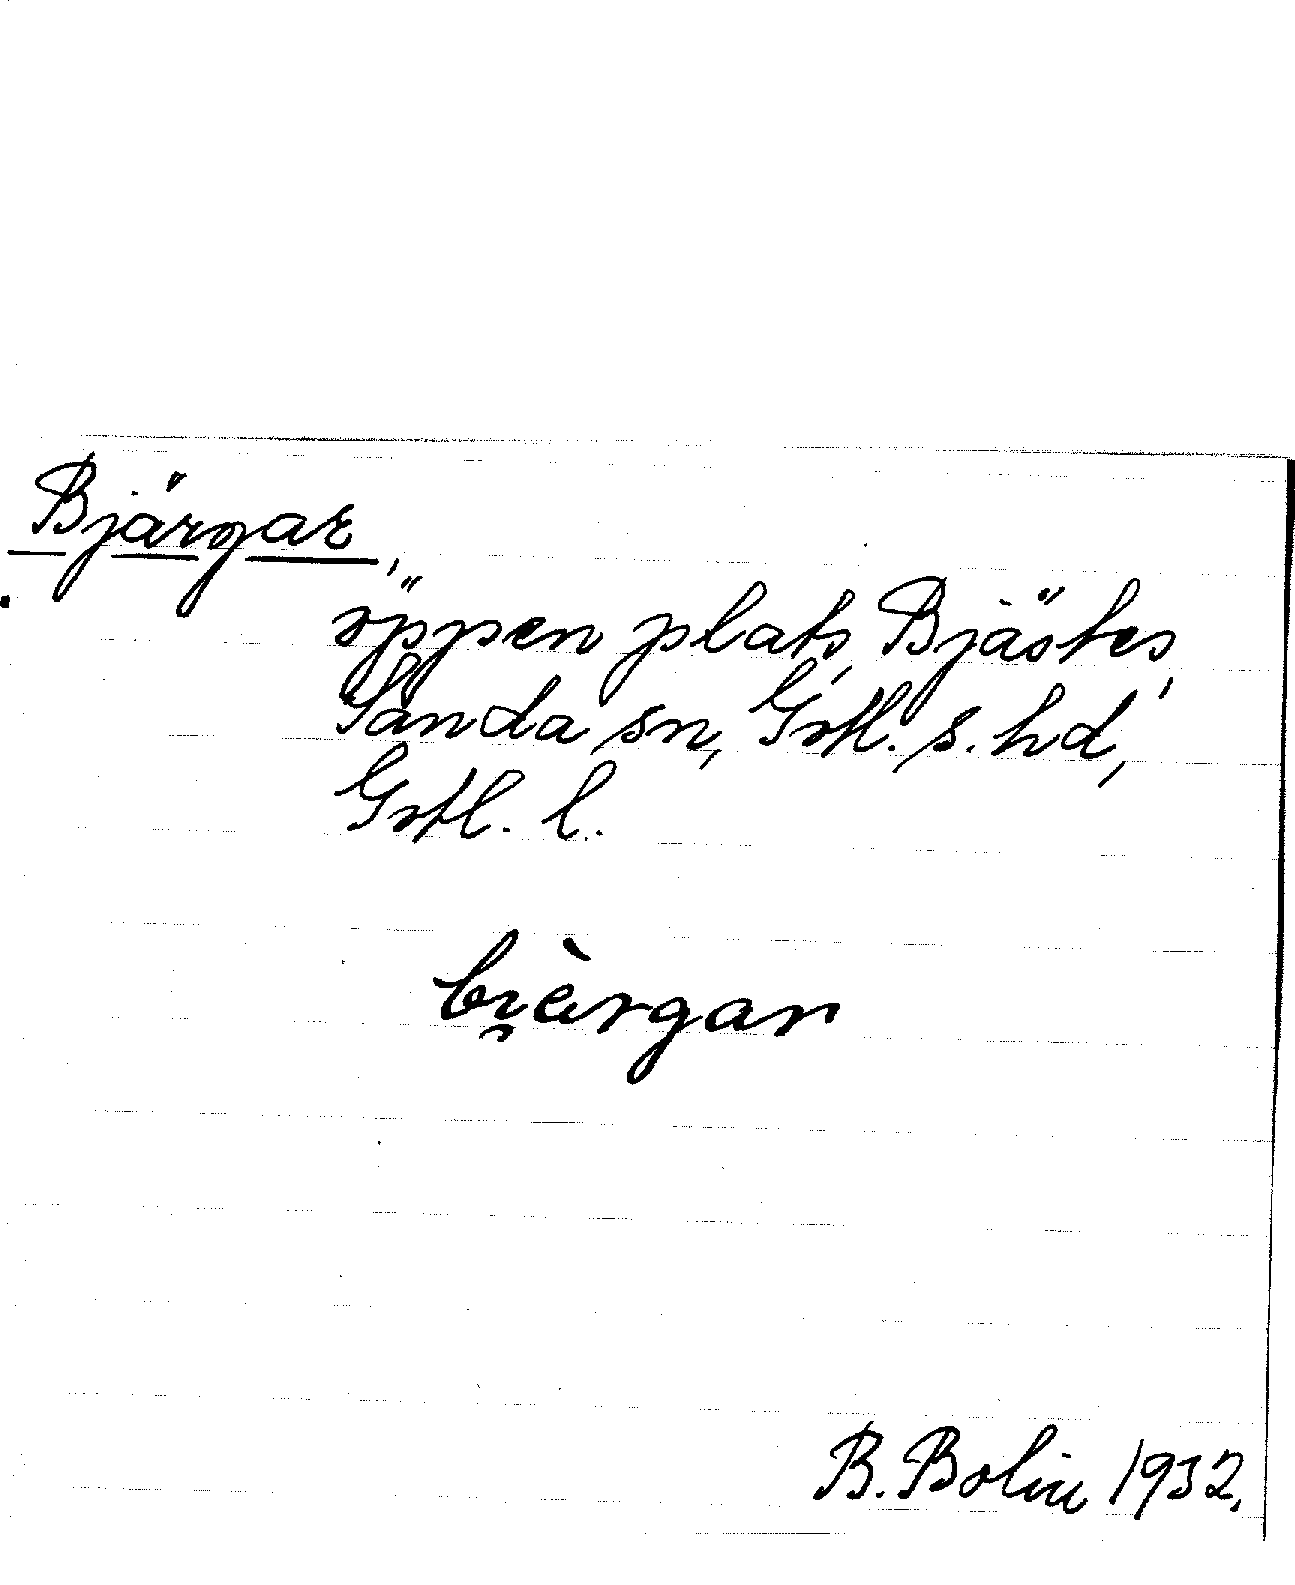 Bjärgar,
öppen plats, Bjästes,
Sanda sn, Gotl. s. hd,
Gotl. l.
bi̯èrgar
B. Bolin 1932.